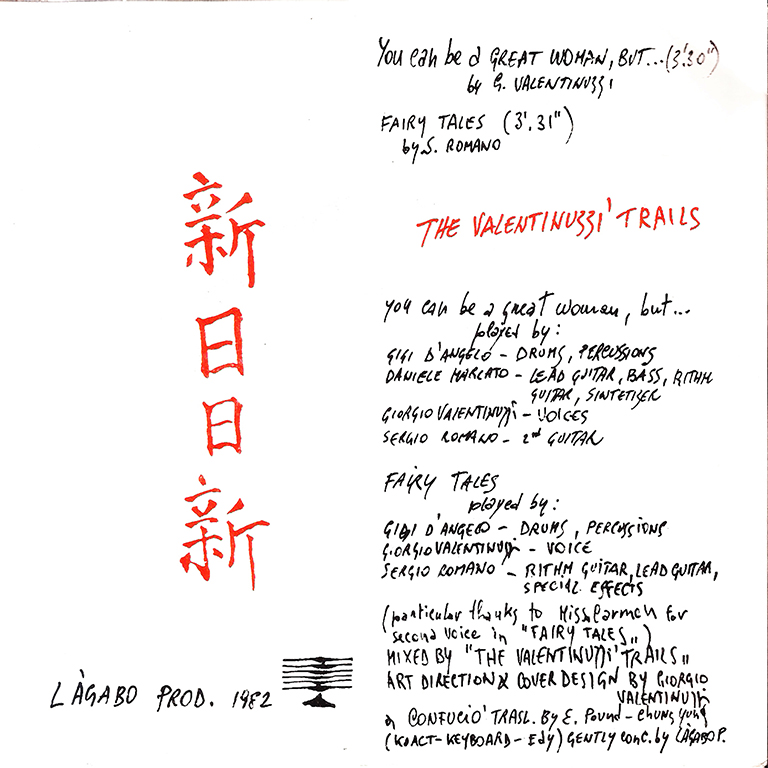 新
日
日
新
LÀGABO PROD. 1982
You can be a GREAT WOMAN, BUT...(3'.30")
by G. VALENTINUZZI
FAIRY TALES (3'.31")
by S. ROMANO
THE VALENTINUZZI' TRAILS
you can be a great woman, but...
played by:
GIGI D'ANGELO - DRUMS, PERCUSSIONS
DANIELE MARCATO - LEAD GUITAR, BASS, RITHM
GUITAR, SINTETIZER
GIORGIO VALENTINUZZI - VOICES
SERGIO ROMANO - 2nd GUITAR
FAIRY TALES
played by:
GIGI D'ANGELO - DRUMS, PERCUSSIONS
GIORGIO VALENTINUZZI - VOICE
SERGIO ROMANO - RITHM GUITAR, LEAD GUITAR,
SPECIAL EFFECTS
(particular thanks to Miss Carmen for
second voice in "FAIRY TALES")
MIXED BY "THE VALENTINUZZI' TRAILS"
ART DIRECTION & COVER DESIGN BY GIORGIO
VALENTINUZZI
CONFUCIO' TRASL. By E. Pound - Chung Yung
(KOACT-KEYBOARD-EDY) GENTLY CONC. by LÀGABO P.